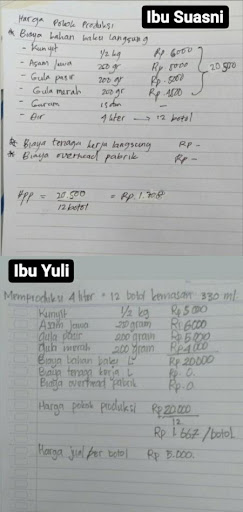 Ibu Suasni
Harga Pokok Produksi
* Biaya bahan baku langsung
- Kunyit 1/2 kg Rp 6000
- Asam Jawa 250 gr Rp 5000
- Gula pasir 200 gr Rp. 5000
- Gula merah 200 gr Rp. 4500
20.500
- Garam -
- Air 4 liter → 12 botol
* Biaya tenaga kerja langsung Rp -
* Biaya overhead pabrik Rp -
Hpp = 20.500 = Rp. 1.708
12 botol
Ibu Yuli
Memproduksi 4 liter = 12 botol kemasan 330 ml.
Kunyit 1/2 kg Rp 5000
Asam Jawa gram Rp 6000
Gula pasir 200 gram Rp 5000
Gula merah 200 gram Rp 4000
Biaya bahan baku L Rp 20000
Biaya tenaga kerja L Rp. 0.
Biaya overhead pabrik Rp. 0.
Harga pokok produksi Rp 20.000
12
Rp 1.667 /botol
Harga jual per botol Rp 5.000.